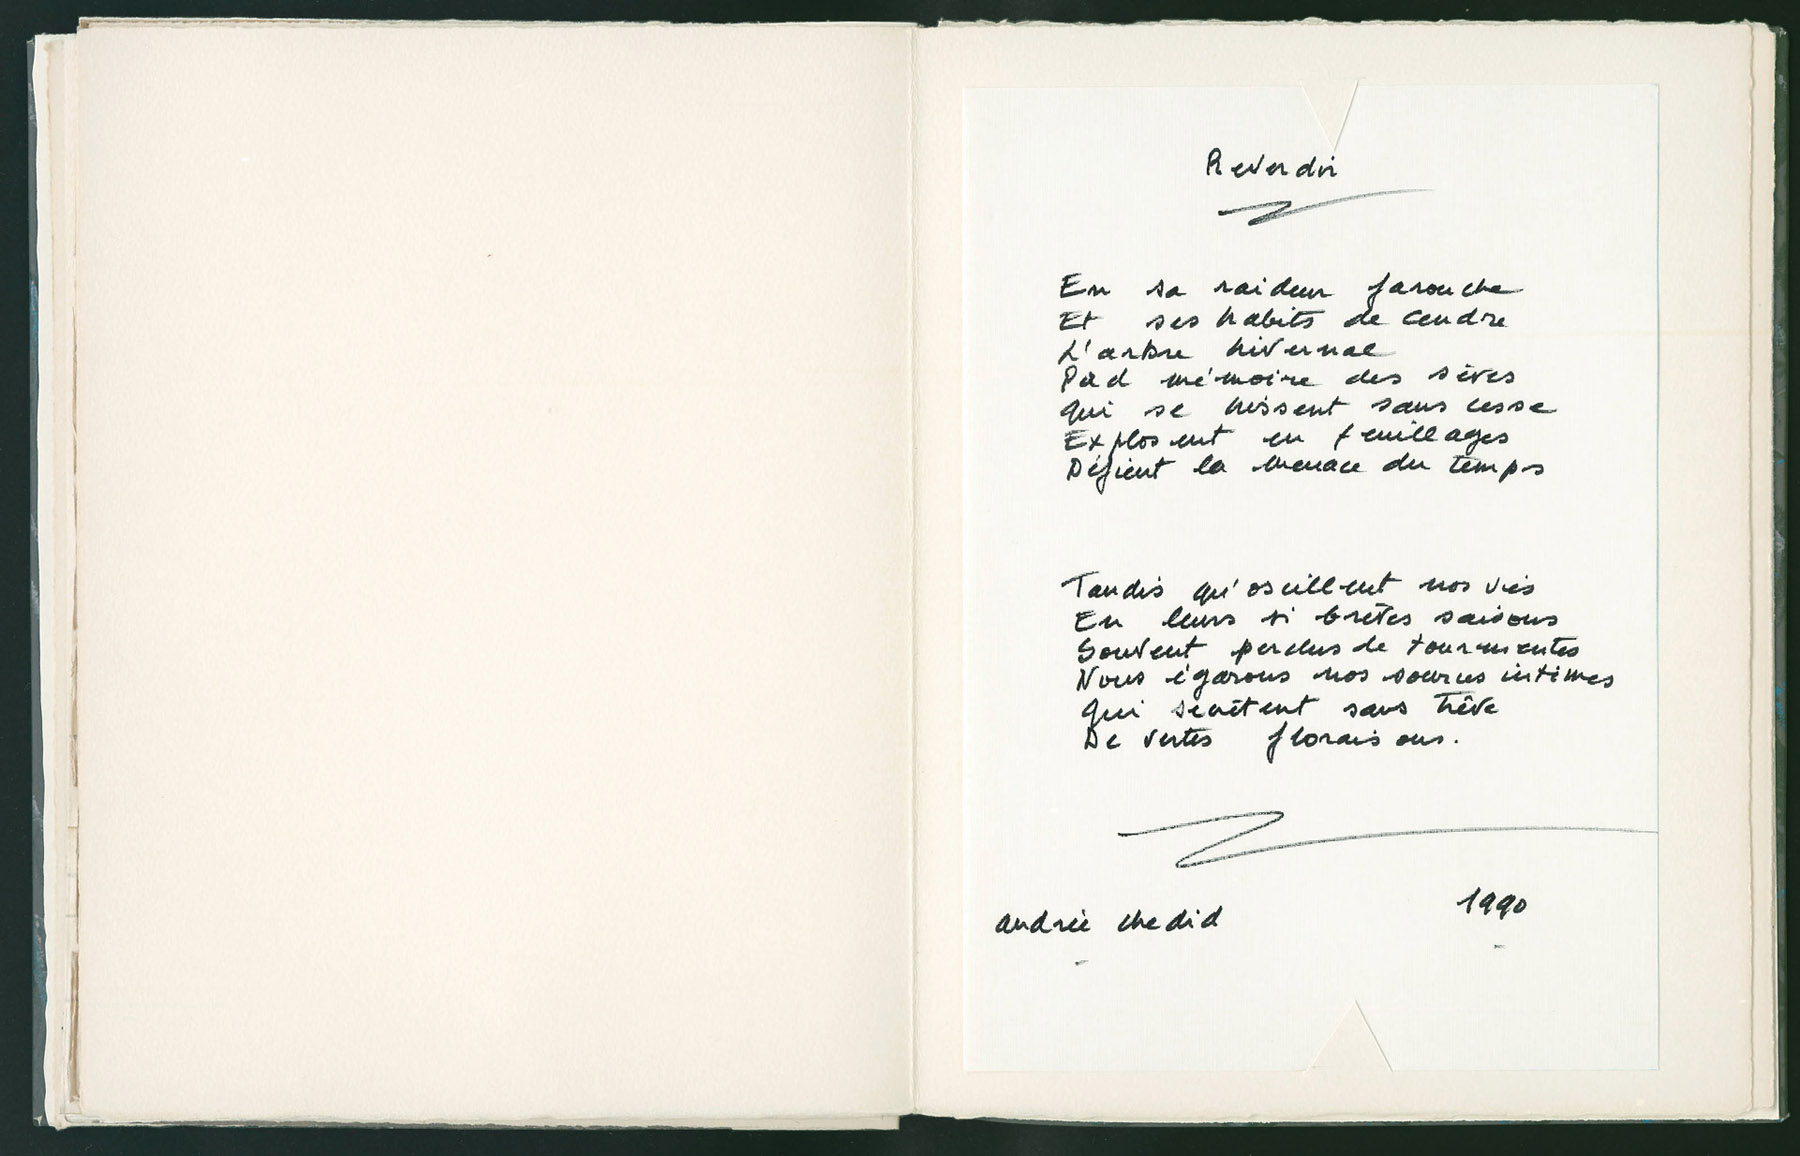 Reverdir
En sa raideur farouche
Et ses habits de cendre
L'arbre hivernal
Perd mémoire des sèves
Qui se hissent sans cesse
Explosent en feuillages
Défient la menace du temps
Tandis qu'oscillent nos vies
En leurs si brèves saisons
Souvent perclus de tourmentes
Nous égarons nos sources intimes
Qui secrètent sans trêve
De vertes floraisons.
andrée chedid 1990